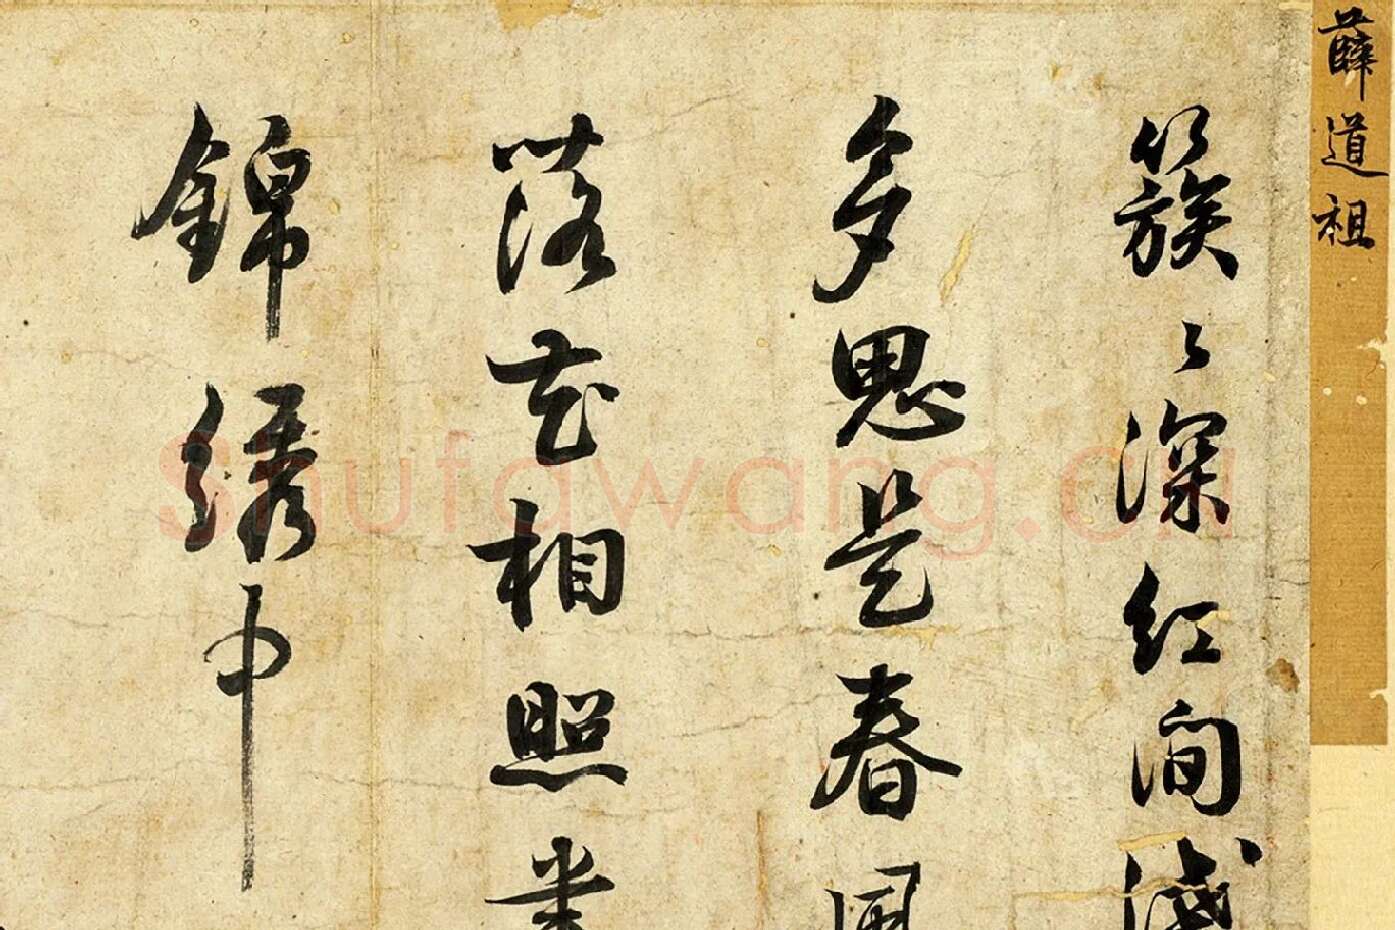 薛道祖
簇〻深紅間淺
多思是春風
落花相照
錦繡中
Shufawang.cn